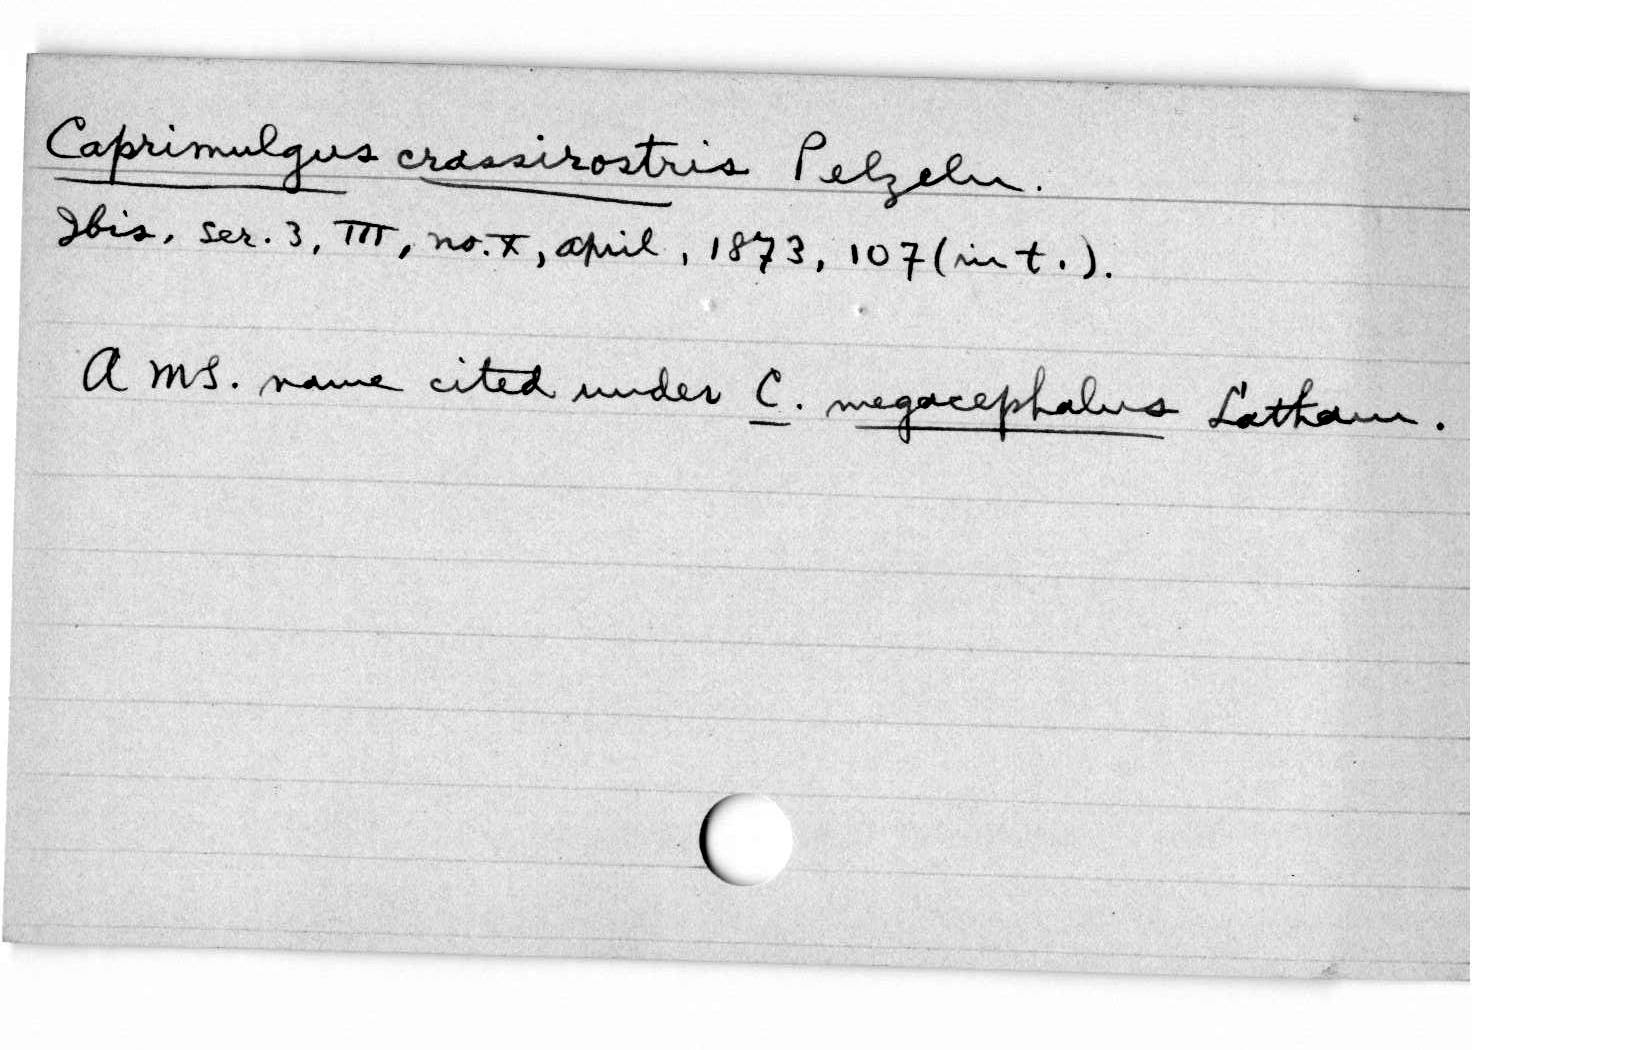 Caprimulgus crassirostris Pelzeln.
Ibis, ser. 3, III, no. X, april, 1873, 107 (in t.).
A MS. name cited under C. megacephalus Latham.